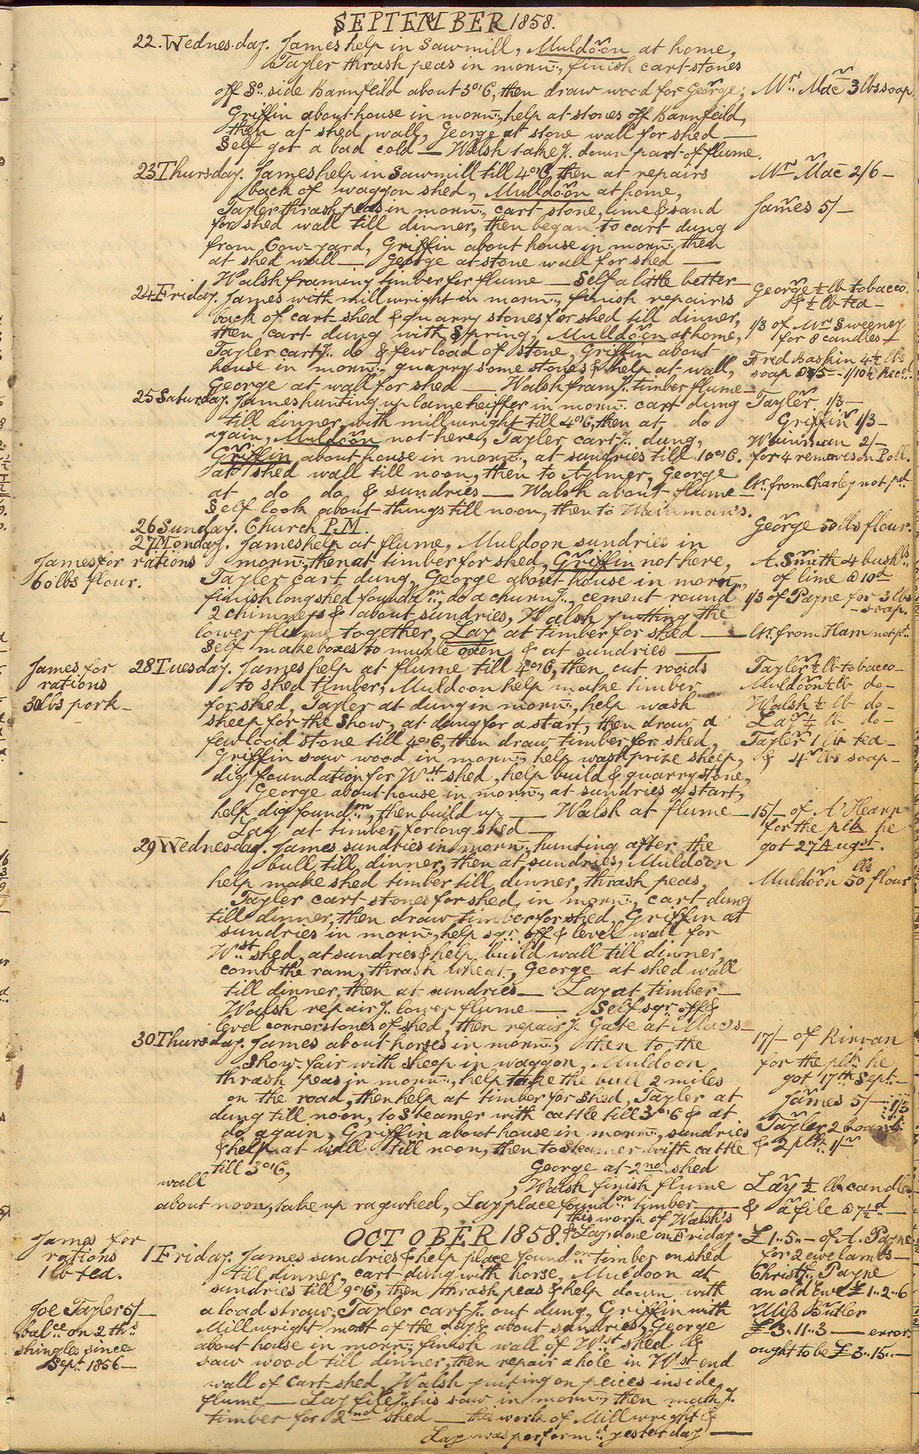 SEPTEMBER 1858.
22. Wednesday. James help in Sawmill, Muldoon at home,
Tayler thrash peas in morn:, finish cart stones
off So. side Barnfeild about 3 o'C, then draw wood for George,
Mr. Mac 3 lbs soap.
Griffin about house in morn:, help at stones off Barnfeild,
then at shed wall, George at stone wall for shed —
Self got a bad cold — Walsh take g. down part of flume.
23 Thursday. James help in Sawmill till 4 o'C, then at repairs
Mr. Mac 2/6 —
back of waggon shed, Mulldoon at home,
Tayler thrash peas in morn:, cart stone, lime & sand
James 5/—
for shed wall till dinner, then began to cart dung
from Cow-yard, Griffin about house in morn:, then
at shed wall — George at stone wall for shed —
Walsh framing timber for flume — Self a little better
24 Friday. James with millwright in morn:, finish repairs
George ½ lb tobacco
& ½ lb tea —
back of cart shed & quarry stones for shed till dinner,
then cart dung with Spring, Mulldoon at home,
1/3 of Mrs Sweeney
for 8 candles +
Tayler cart g. do & few load of stone, Griffin about
house in morn:, quarry some stones & help at wall,
Fred Baskin 4½ lbs
soap @ /5 — 1/10½ Rect.
George at wall for shed — Walsh fram g. timber flume —
25 Saturday. James hunting up lame heiffer in morn: cart dung
Tayler 1/3 —
till dinner, with millwright till 4 o'C, then at do
Griffin 1/3 —
again, Muldoon not here, Tayler cart g. dung,
Wainman 2/—
Griffin about house in morn:, at sundries till 10 o'C.
for 4 removes on Poll.
at shed wall till noon, then to Aylmer, George
at do do & sundries — Walsh about flume —
Lr. from Charley not pd.
Self look about things till noon, then to Wainman's.
26 Sunday. Church P.M.
George 50 lbs flour.
27 Monday. James help at flume, Muldoon sundries in
James for rations
60 lbs flour.
morn: then at timber for shed, Griffin not here,
A. Smith 4 bushls
of lime @ 10d
Tayler cart dung, George about house in morn,
finish long shed foundn., do a churn g., cement round
1/3 of Payne for 3 lbs
soap.
2 chimneys & about sundries, Walsh putting the
lower flume together, Lay at timber for shed —
Lr. from Ham not pd.
Self make boxes to muzle oxen & at sundries —
28 Tuesday. James help at flume till 4 o'C, then cut roads
James for
rations
50 lbs pork —
Tayler ½ lb tobacco
to shed timber, Muldoon help make timber
Muldoon ½ lb do —
for shed, Tayler at dung in morn:, help wash
Walsh ½ lb do
sheep for the Show, at dung for a start, then draw a
Lay ½ lb do —
few load stone till 4 o'C, then draw timber for shed,
Tayler 1 lb tea —
Griffin saw wood in morn:, help wash prize sheep,
& 4 lbs soap —
dig foundation for Wst shed, help build & quarry stone,
George about house in morn:, at sundries a start,
help dig foundn., then build up — Walsh at flume —
15/— of A' Hearn
Lay at timber for long shed —
for the plk he
got 27 August.
29 Wednesday. James sundries in morn:, hunting after the
bull till dinner, then at sundries, Muldoon
help make shed timber till dinner, thrash peas,
Muldoon 50 lbs flour
Tayler cart stones for shed in morn:, cart dung
till dinner, then draw timber for shed, Griffin at
sundries in morn:, help sqr. off & level wall for
Wst shed, at sundries & help build wall till dinner,
comb the ram, thrash wheat, George at shed wall
till dinner, then at sundries — Lay at timber —
Walsh repair g. lower flume — Self sqr. off &
level corner stones of shed, then repair g. Gate at Mac's —
30 Thursday. James about horses in morn:, then to the
17/— of Kirvan
for the plk he
got 17th Sept. —
Show-fair with Sheep in waggon, Muldoon
thrash peas in morn:, help take the bull 2 miles
on the road, then help at timber for shed, Tayler at
James 5/—
dung till noon, to Steamer with cattle till 3 o'C & at
Tayler 2 boards
1/3
do again, Griffin about house in morn:, sundries
& 2 plk
& help at wall till noon, then to steamer with cattle
till 3 o'C, George at 2nd shed
wall, Walsh finish flume
Lay ½ lb candles
about noon, take up rag wheel, Lay place foundn. timber —
& a file @ 7½d —
this work of Walsh's
OCTOBER 1858. & Lay done on Friday.
James for
rations
1 lb tea.
£1..5.. — of A. Payne
for 2 ewe lambs —
1 Friday. James sundries & help place foundn. timber on shed
till dinner, cart dung with horse, Muldoon at
Christr. Payne
sundries till 9 o'C, then thrash peas & help down with
an old Ewe £1..2..6
Joe Tayler 5/—
balce on 2 ths
shingles since
Sept. 1856 —
a load straw, Tayler cart g. out dung, Griffin with
Miss Baker
Millwright most of the day & about sundries, George
£3..11..3 — error
about house in morn:, finish wall of Wst shed &
ought to be £3..15.. —
saw wood till dinner, then repair a hole in Wst end
wall of cart-shed, Walsh putting on peices inside
flume — Lay file g. his saw in morn:, then mak g.
timber for 2nd shed — this work of Millwright &
Lay was performd. yesterday —